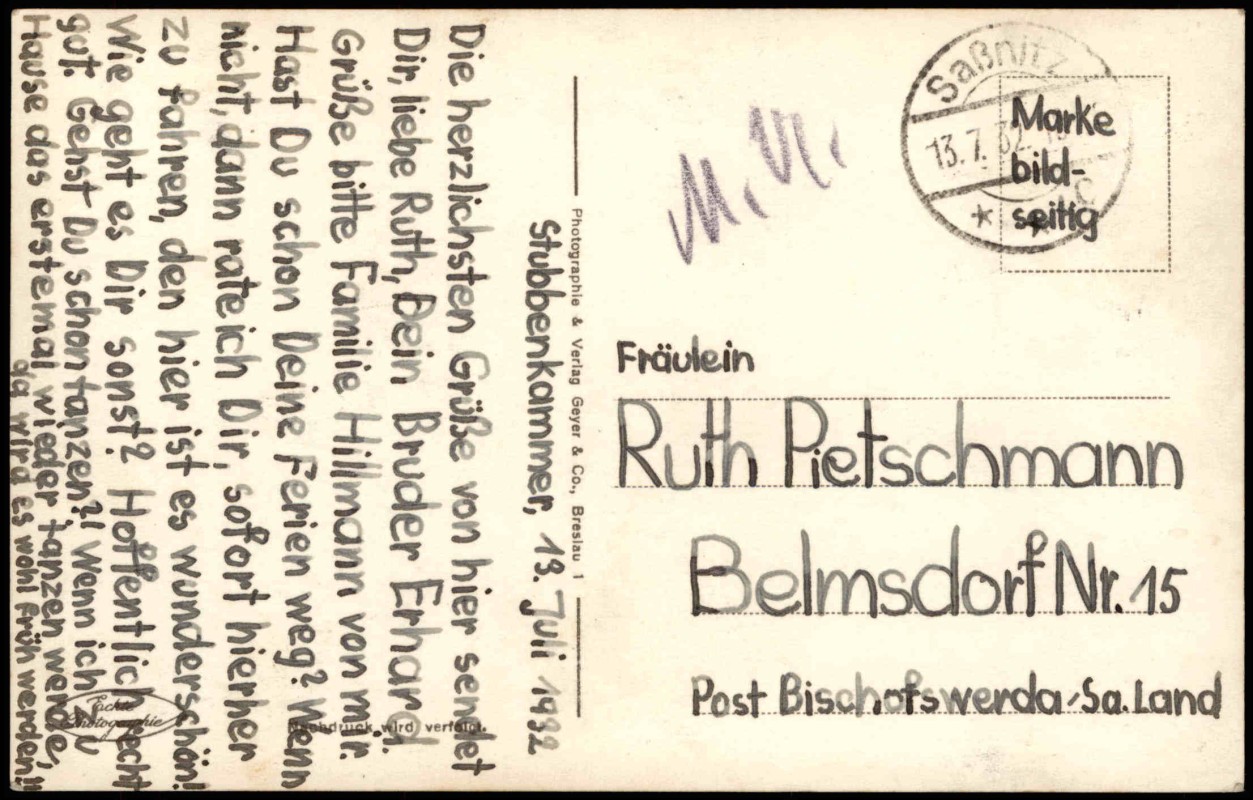 Stubbenkammer, 13. Juli 1932
Die herzlichsten Grüße von hier sendet
Dir, liebe Ruth, Dein Bruder Erhard.
Grüße bitte Familie Hillmann von mir.
Hast Du schon Deine Ferien weg? Wenn
nicht, dann rate ich Dir, sofort hierher
zu fahren, den hier ist es wunderschön!
Wie geht es Dir sonst? Hoffentlich recht
gut. Gehst Du schon tanzen?! Wenn ich zu
Hause das erstemal wieder tanzen werde,
da wird es wohl früh werden!!
Echte
Photographie
Nachdruck wird verfolgt.
Photographie & Verlag Geyer & Co., Breslau 1
Saßnitz
13.7.32.
C
Marke
bild-
seitig
Fräulein
Ruth Pietschmann
Belmsdorf Nr. 15
Post Bischofswerda-Sa. Land